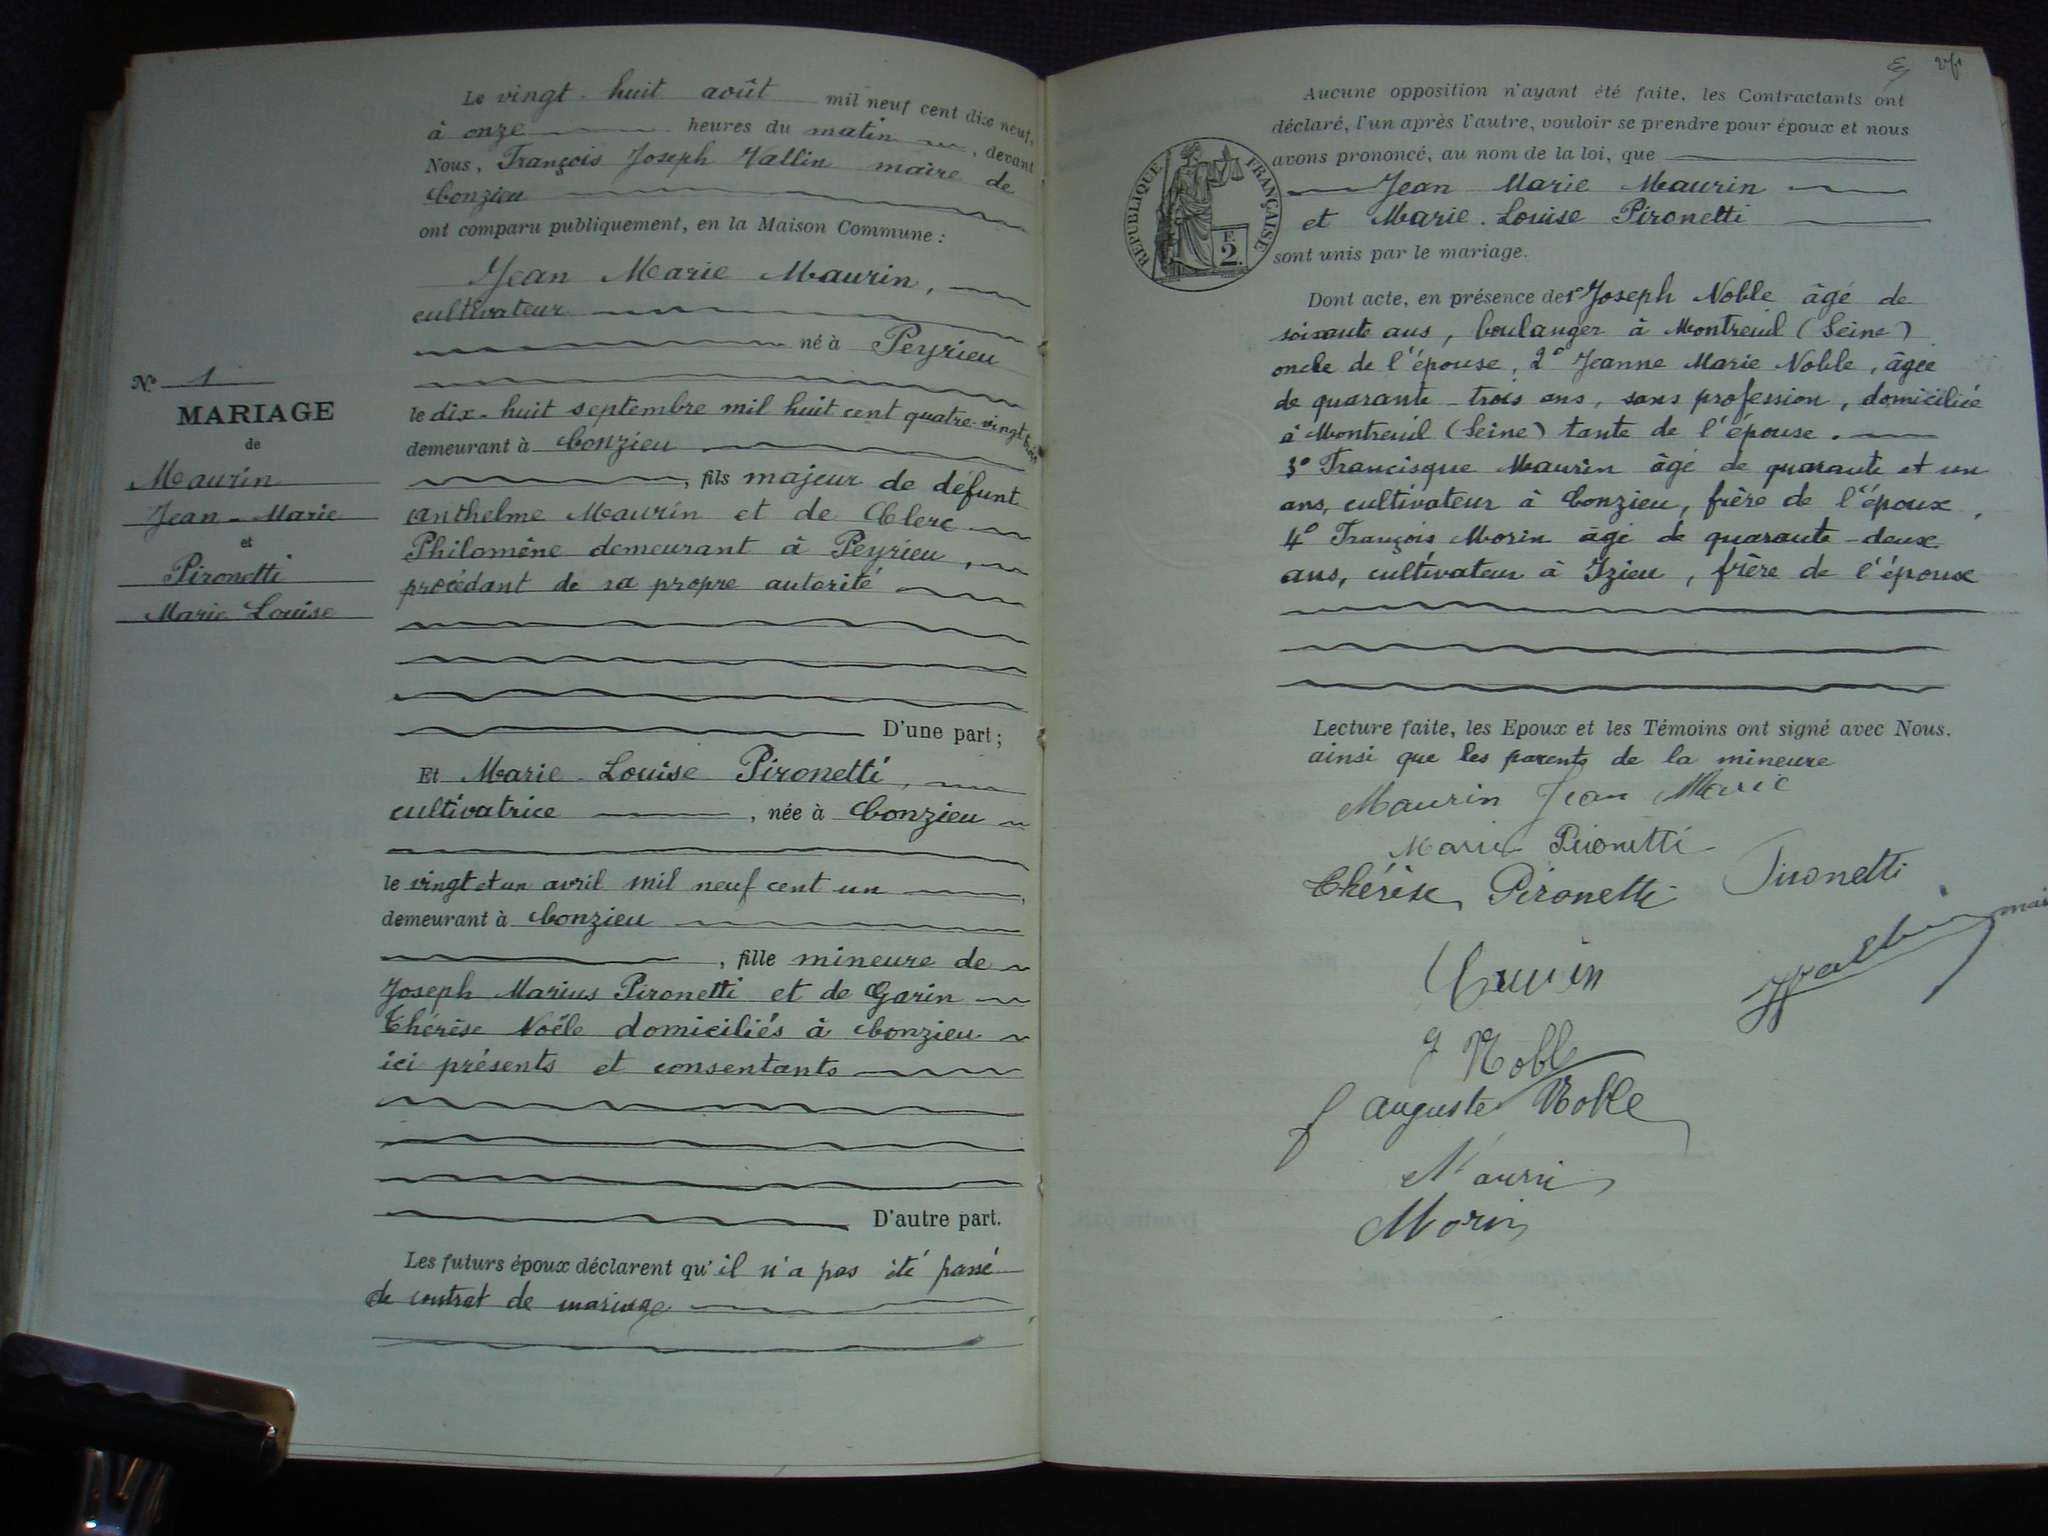 Le vingt-huit août mil neuf cent dix neuf,
à onze heures du matin, devant
Nous, François Joseph Vallin maire de
Conzieu
ont comparu publiquement, en la Maison Commune :
Jean Marie Maurin,
cultivateur
né à Peyrieu
le dix-huit septembre mil huit cent quatre-vingt trois
demeurant à Conzieu
, fils majeur de défunt
Anthelme Maurin et de Clerc
Philomène demeurant à Peyrieu,
procédant de sa propre autorité
D'une part ;
Et Marie-Louise Pironetti,
cultivatrice, née à Conzieu
le vingt et un avril mil neuf cent un,
demeurant à Conzieu
, fille mineure de
Joseph Marius Pironetti et de Garin
Thérèse Noële domiciliés à Conzieu
ici présents et consentants
D'autre part.
Les futurs époux déclarent qu'il n'a pas été passé
de contrat de mariage
No 1
MARIAGE
de
Maurin
Jean-Marie
et
Pironetti
Marie Louise
Aucune opposition n'ayant été faite, les Contractants ont
déclaré, l'un après l'autre, vouloir se prendre pour époux et nous
avons prononcé, au nom de la loi, que
Jean Marie Maurin
et Marie-Louise Pironetti
sont unis par le mariage.
RÉPUBLIQUE FRANÇAISE
F.
2
Dont acte, en présence de 1° Joseph Noble âgé de
soixante ans, boulanger à Montreuil (Seine)
oncle de l'épouse, 2° Jeanne Marie Noble, âgée
de quarante-trois ans, sans profession, domiciliée
à Montreuil (Seine) tante de l'épouse.
3° Francisque Maurin âgé de quarante et un
ans, cultivateur à Conzieu, frère de l'époux,
4° François Morin âgé de quarante-deux
ans, cultivateur à Izieu, frère de l'épouse
Lecture faite, les Epoux et les Témoins ont signé avec Nous.
ainsi que les parents de la mineure
Maurin Jean Marie
Marie Pironetti
Thérèse Pironetti Pironetti
maire
J Noble
Auguste Noble
Maurin
Morin